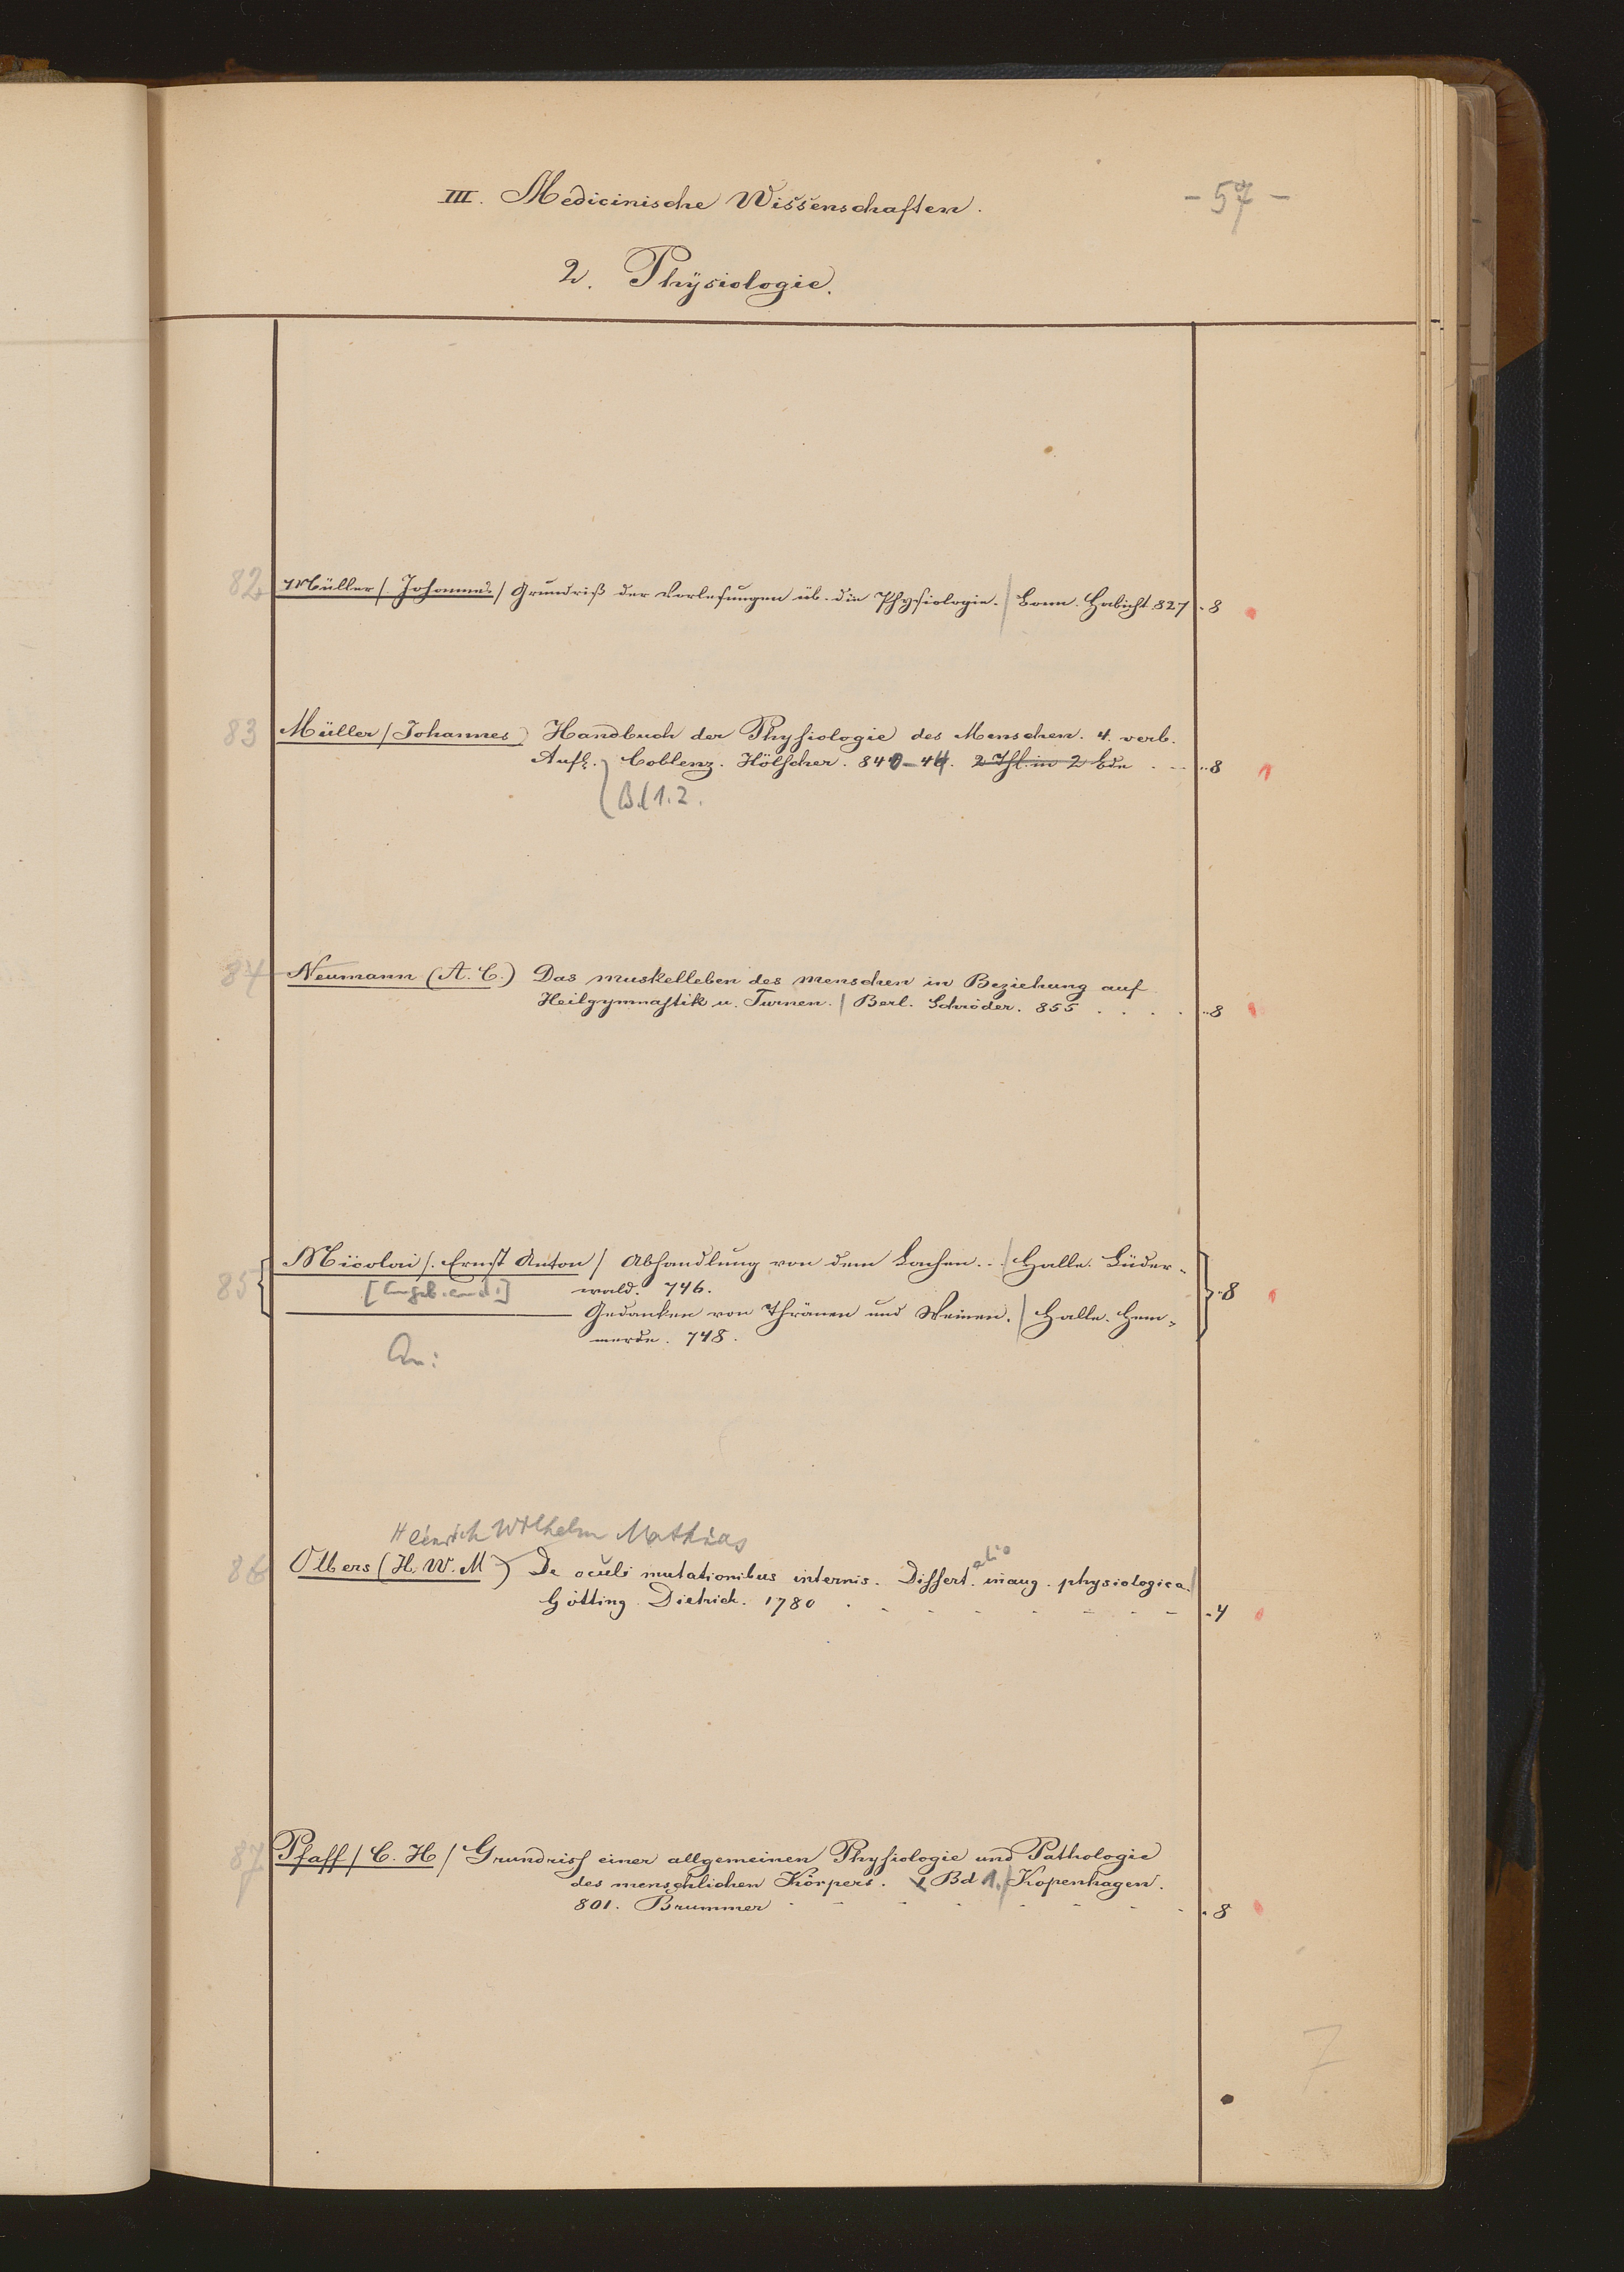 III. Medicinische Wissenschaften.
- 57 -
2. Physiologie.
82 Müller /. Johannes / Grundriß der Vorlesungen üb. die Physiologie. / Bonn. Habicht 827 . 8
83 Müller / Johannes ) Handbuch der Physiologie des Menschen. 4. verb.
Aufl. Coblenz. Hölscher. 840-44. 2 Thl. in 2 Bde . . . . 8
Bd 1.2.
84 Neumann (A. C.) Das Muskelleben des Menschen in Beziehung auf
Heilgymnastik u. Turnen. / Berl. Schröder. 855 . . . . .. 8
85 Nicolai /. Ernst Anton / Abhandlung von dem Lachen. . / Halle. Lüder-
wald. 746. .. 8
Gedanken von Thränen und Weinen. / Halle. Hem-
merde. 748.
An:
Heinrich Wilhelm Mathias
86 Olbers (H. W. M ) De oculi mutationibus internis. Dissert.atio inaug. physiologica. /
Götting. Dietrich. 1780 . . . . . . . . . 4
87 Pfaff / C. H / Grundriss einer allgemeinen Physiologie und Pathologie
des menschlichen Körpers. Bd 1. / Kopenhagen.
801. Brummer . . . . . . . . 8
7